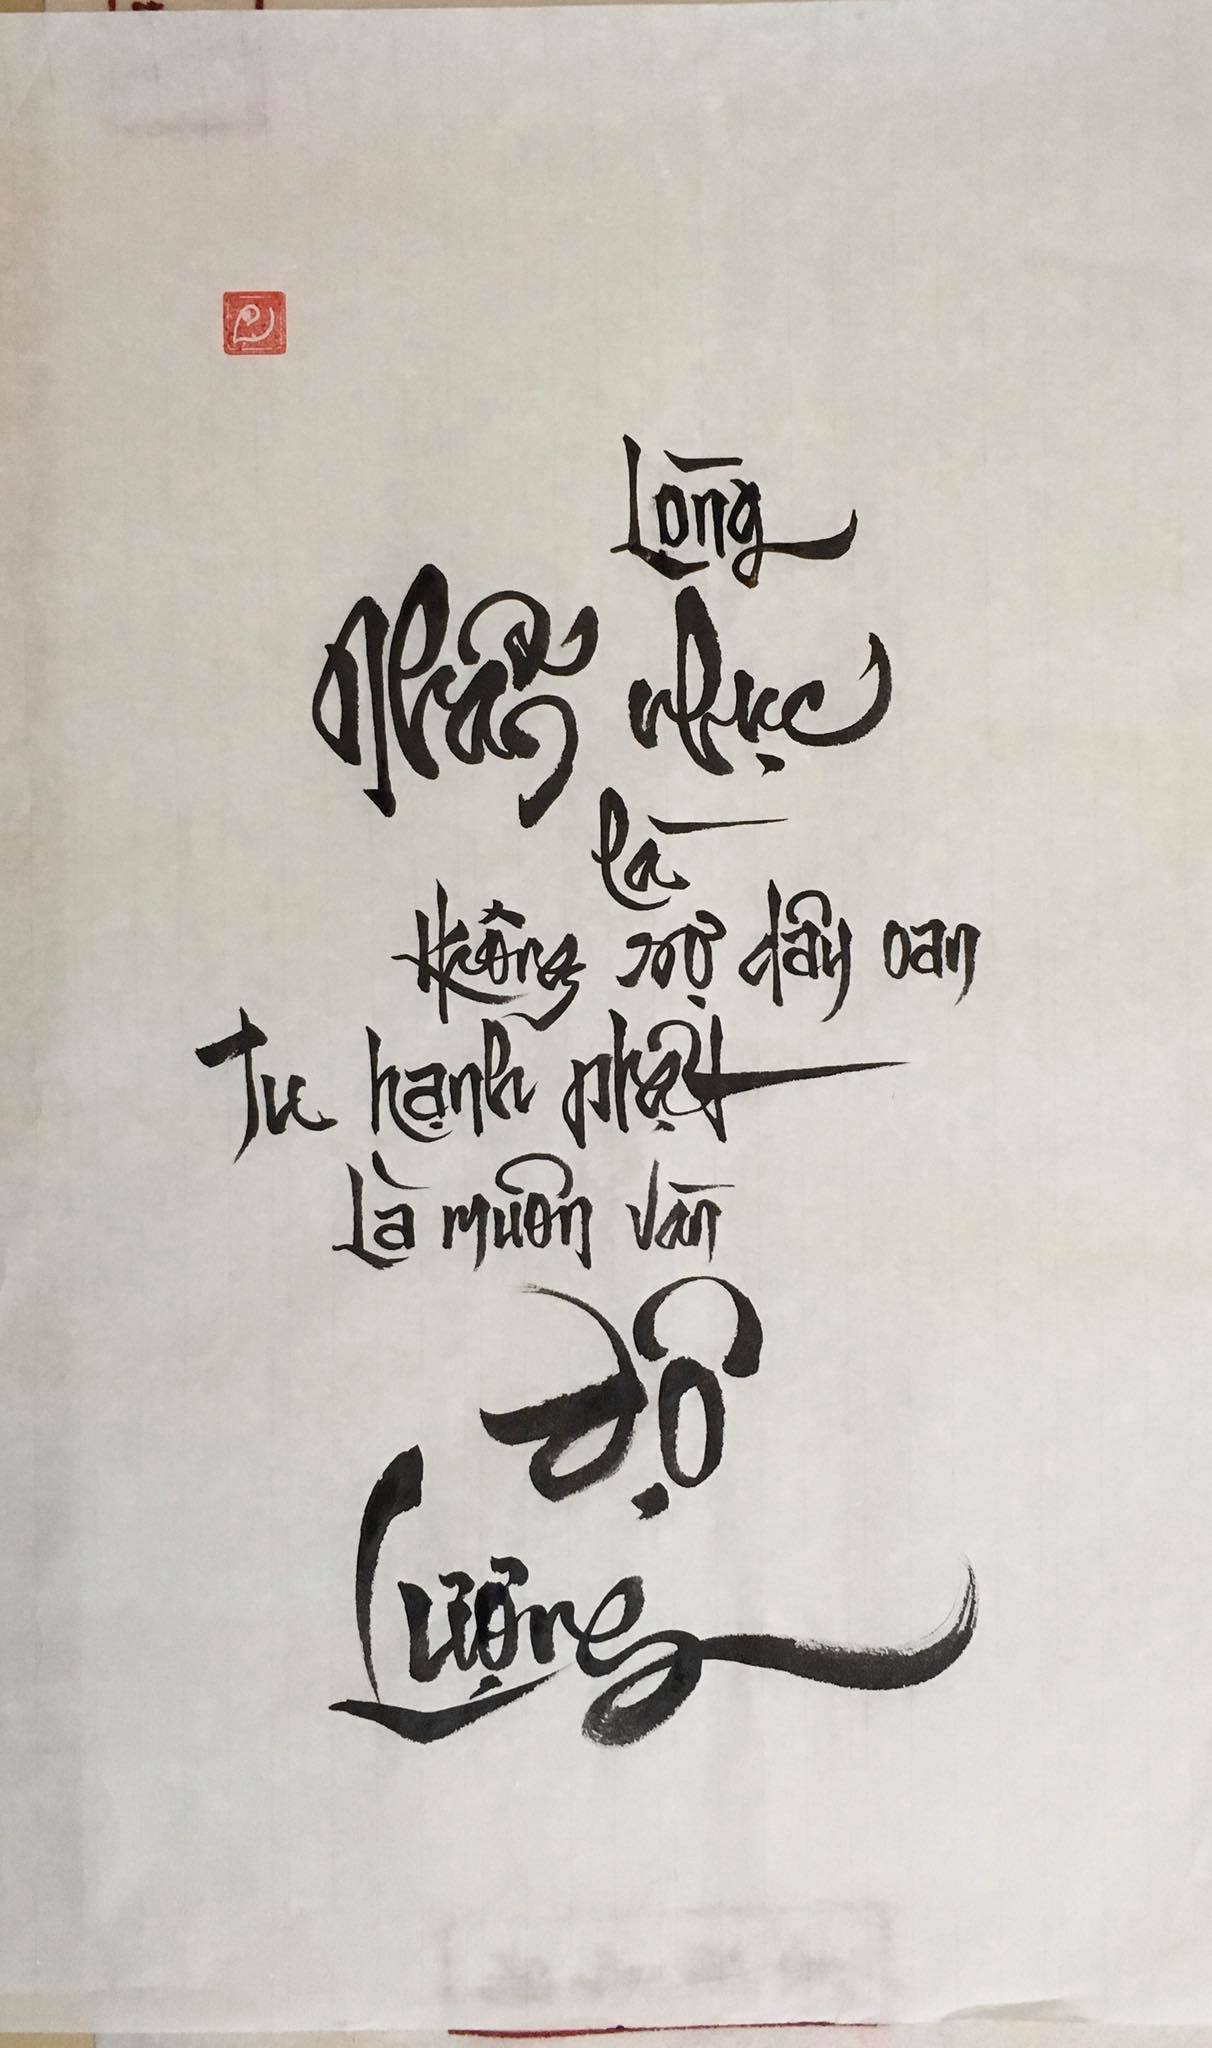 Lòng
Nhẫn nhục
là
Không sợ dây oan
Tu hạnh phật
Là muôn vàn
Độ
Lượng